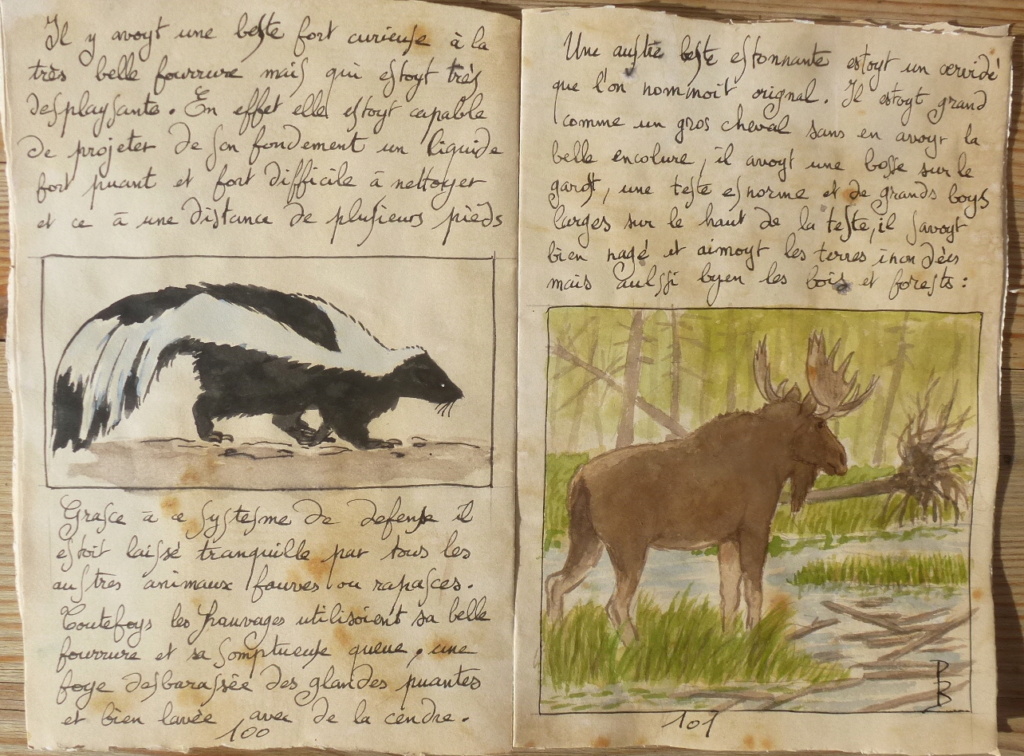 Il y avoyt une beste fort curieuse à la
très belle fourrure mais qui estoyt très
desplaysante. En effet elle estoyt capable
de projeter de son fondement un liquide
fort puant et fort difficile à nettoyer
et ce à une distance de plusieurs pieds
Grasce à ce systesme de defense il
estoit laissé tranquille par tous les
austres animaux fauves ou rapasces.
Toutefoys les sauvages utilisoient sa belle
fourrure et sa somptueuse queue, une
foye desbarassée des glandes puantes
et bien lavée avec de la cendre.
100
Une austre beste estonnante estoyt un cervidé
que l'on nommoit orignal. Il estoyt grand
comme un gros cheval sans en avoyr la
belle encolure, il avoyt une bosse sur le
garost, une teste esnorme et de grands boys
larges sur le haut de la teste, il savoyt
bien nagé et aimoyt les terres inondées
mais aulssi byen les bois et forests :
PB
101